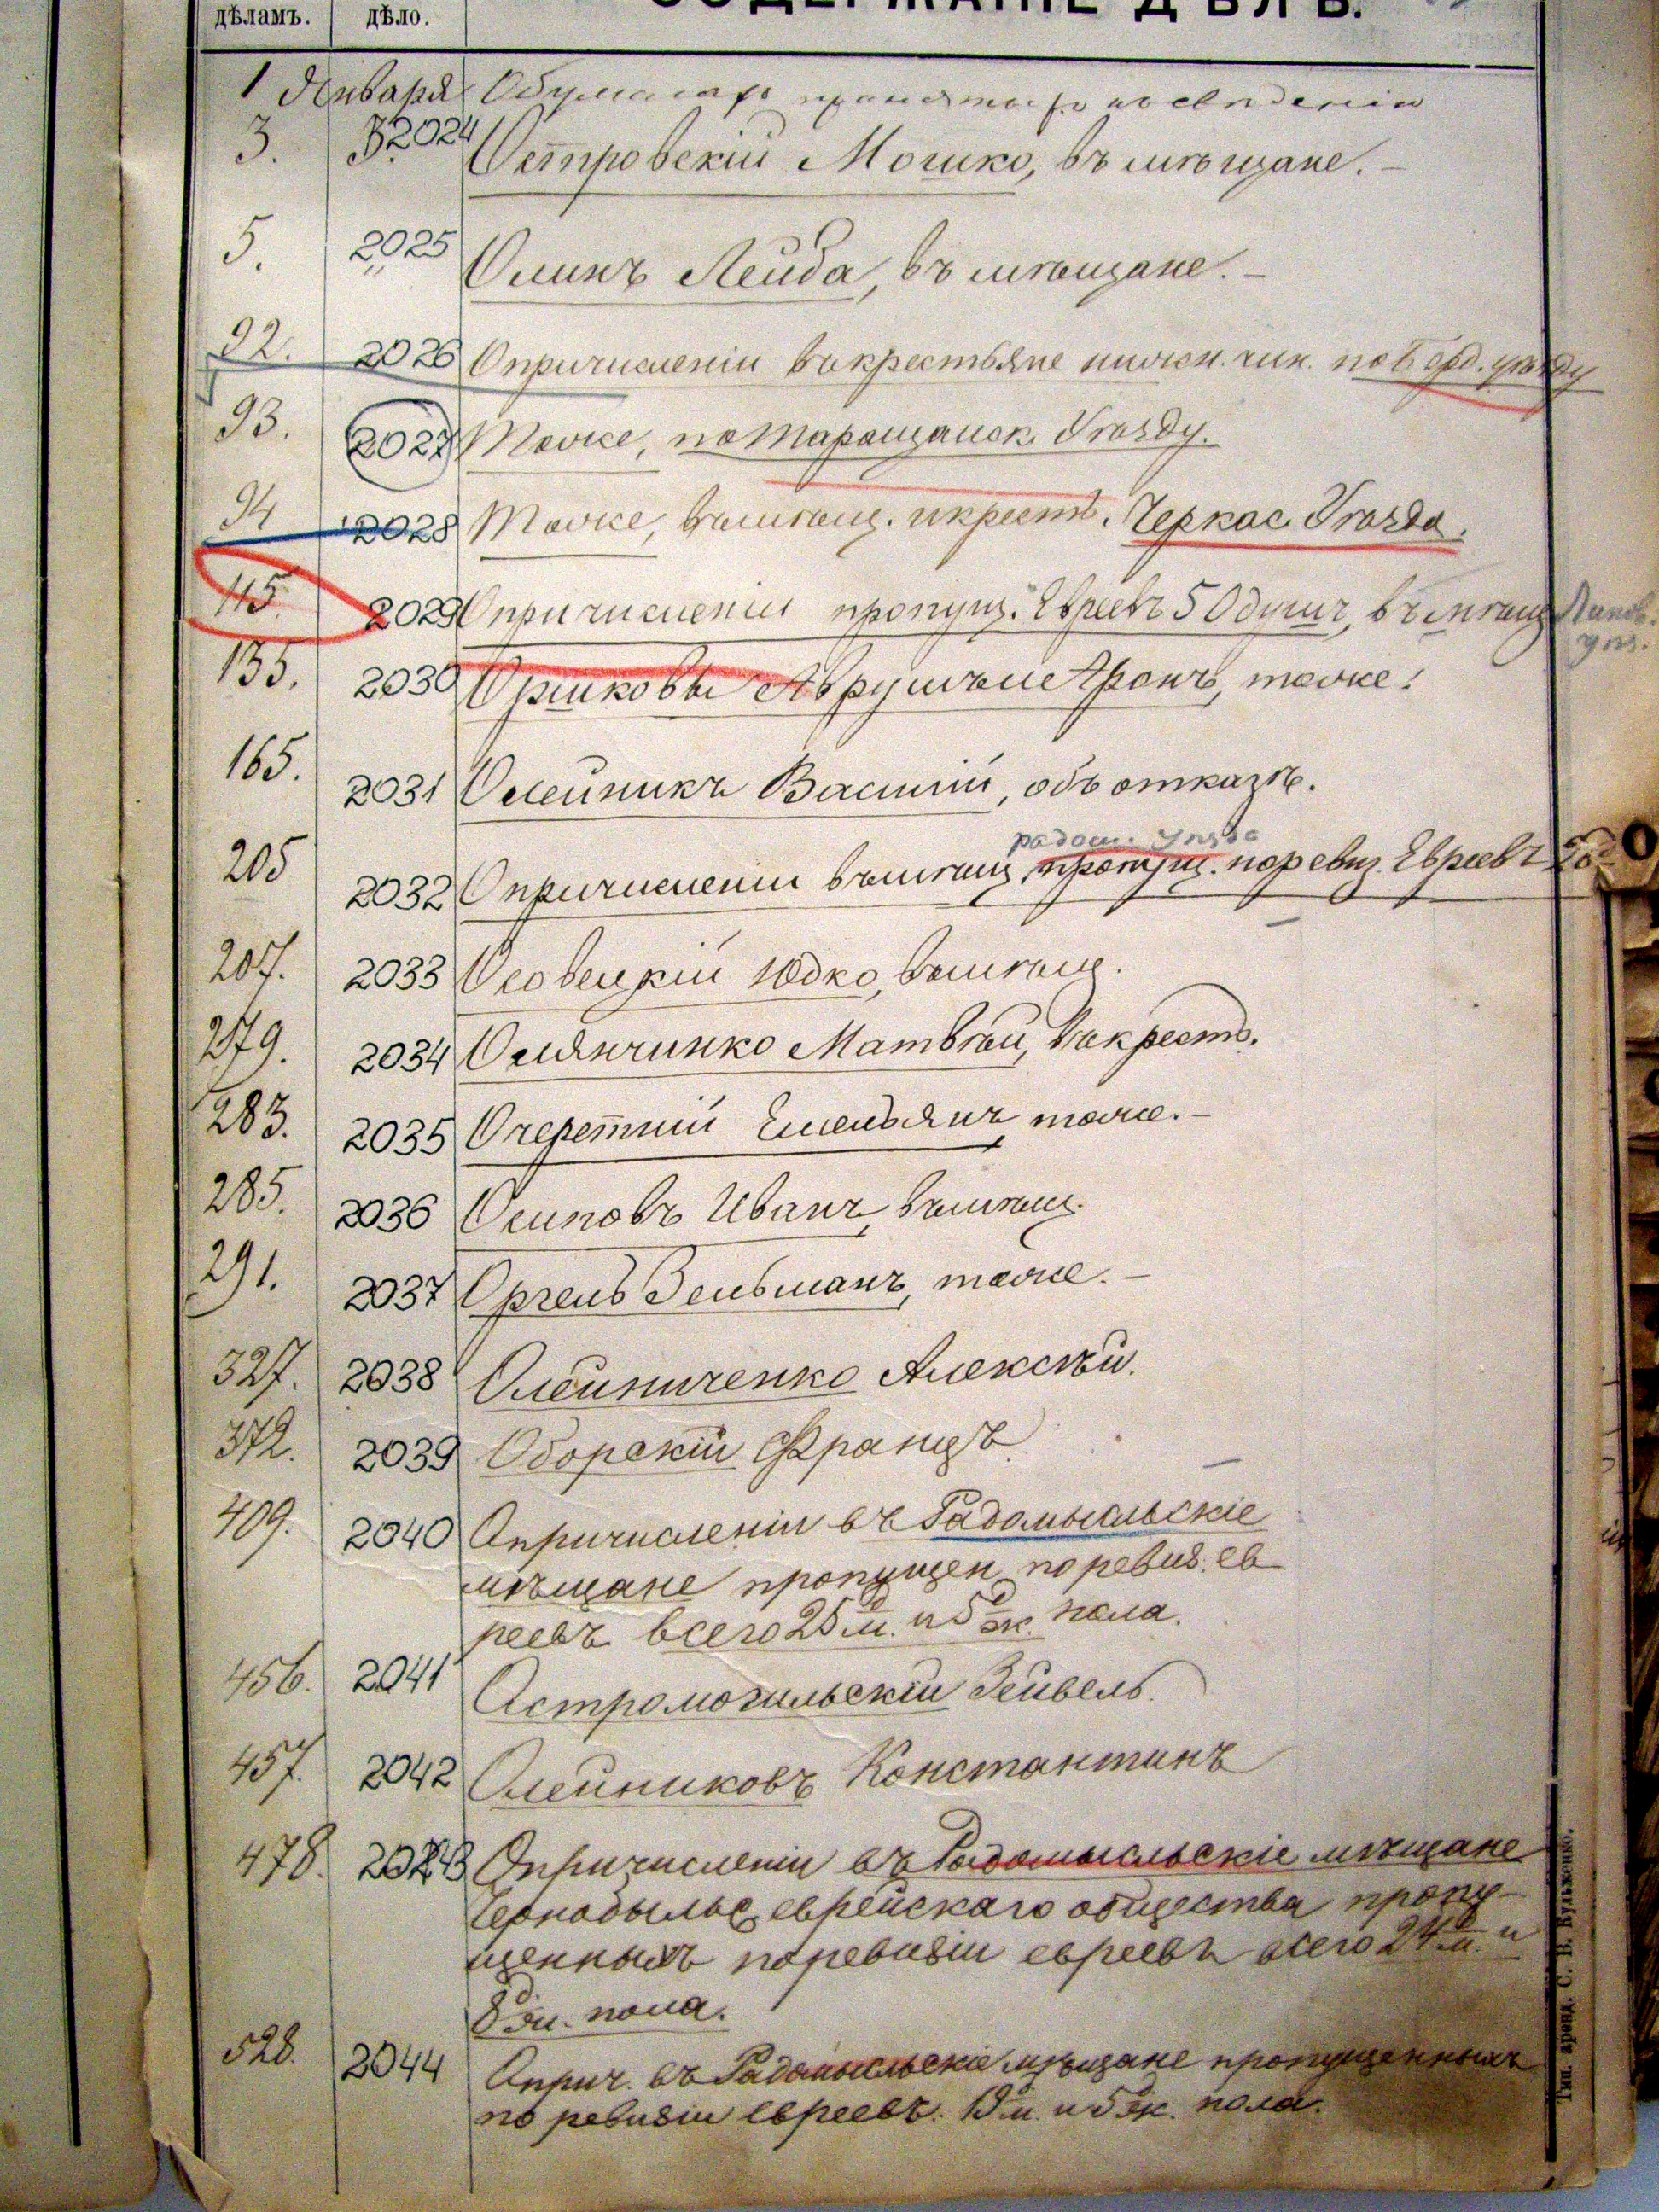 дѣламъ. дѣло. СОДЕРЖАНІЕ ДѢЛЪ.
1 Января
3. 2024 Островскій Мошко, въ мѣщане. —
5. 2025 Олинъ Лейба, въ мѣщане. —
92. 2026 О причисленіи въ крестьяне нижн. чин. по Берд. уѣзду
93. 2027 Тоже, по Таращанск. Уѣзду.
94 2028 Тоже, въ мѣщ. и крест. Черкас. Уѣзда.
115. 2029 О причисленіи пропущ. Евреевъ 50 душъ, въ мѣщ. Липов. уѣз.
135. 2030 Оршковы Аврумъ и Аронъ, тоже.
165. 2031 Олейникъ Василій, объ отказѣ.
радом. уѣзда
205 2032 О причисленіи въ мѣщ. пропущ. по ревиз. Евреевъ
207. 2033 Осовецкій Юдко, въ мѣщ.
279. 2034 Олянчинко Матвѣй, въ крест.
283. 2035 Очеретний Емельянъ тоже. —
285. 2036 Осиповъ Иванъ, въ мѣщ.
291. 2037 Оргель Зельманъ, тоже. —
327. 2038 Олейниченко Алексѣй.
372. 2039 Оборскій Францъ
409. 2040 О причисленіи въ Радомысльскіе
мѣщане пропущен. по ревиз. ев
реевъ всего 25 м. и 5 ж. пола.
456. 2041 Остромогильскій Зейвель.
457. 2042 Олейниковъ Константинъ
478. 2043 О причисленіи въ Радомысльскіе мѣщане
Чернобыльс. еврейскаго общества пропу-
щенныхъ по ревизіи евреевъ всего 24 м. и
8 ж. пола.
528. 2044 О прич. въ Радомысльскіе мѣщане пропущенныхъ
по ревизіи евреевъ. 19 м. и 5 ж. пола.
Тип. аренд. С. В. Кульженко.